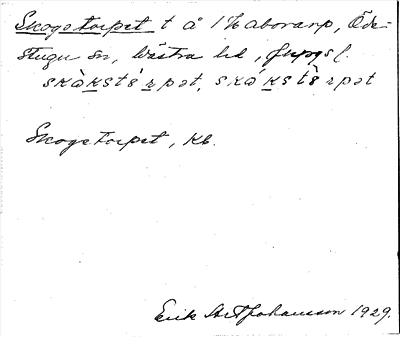 Skogstorpet t å 1 Haboranp, Öde-
stugu sn, Västra hd, Jkpgs l.
skàkstɞ̀rpət, skákstɞ̀rpət
Skogstorpet, Kb.
Erik Johansson 1929.